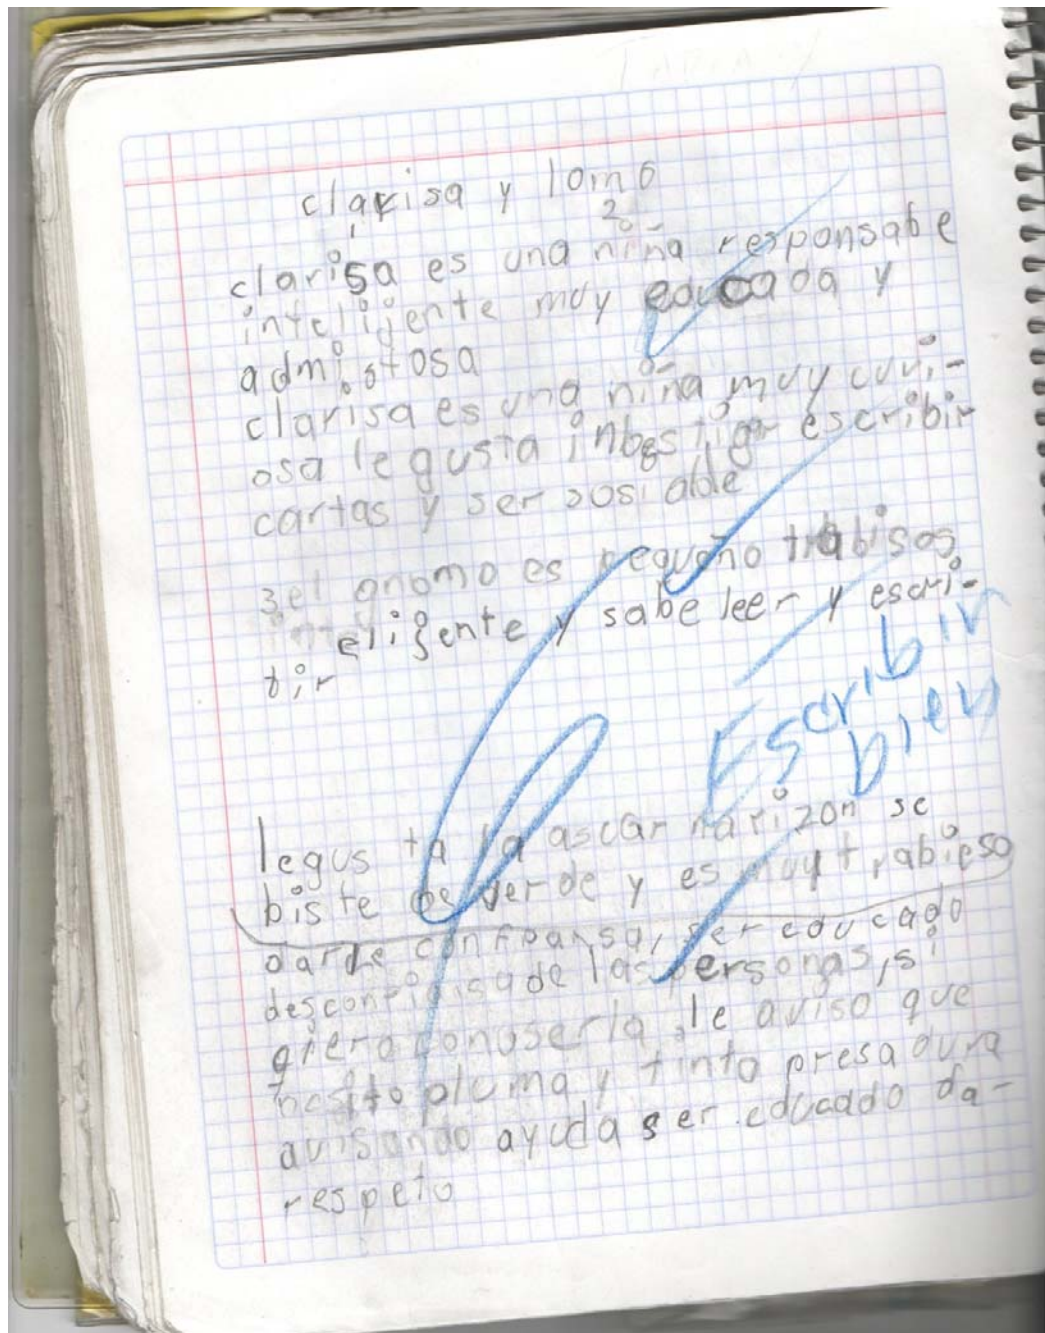 clarisa y lomo
1 2
clarisa es una niña responsabe
intelijente muy educada y
admistosa
clarisa es una niña muy curi-
osa le gusta inbestigar escribir
cartas y ser sosiable
3 el gnomo es pequeño trabisos
inteligente y sabe leer y escri-
bir
Escribir
bien
legus ta la ascar narizon se
biste de verde y es muy trabieso
darle confiansa, ser educado
de las personas, si
qiero conoserla, le aviso que
pluma y tinta presadura
avisando ayuda ser educado da-
respeto